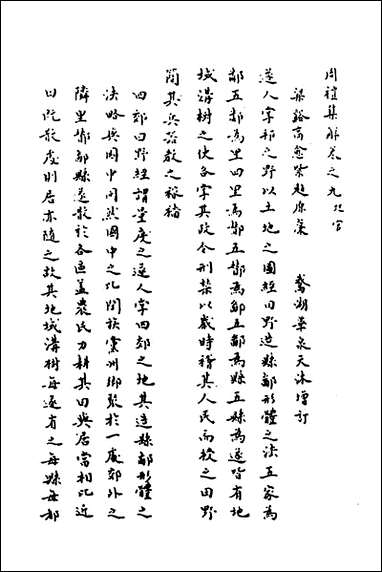 周禮集解卷之九地官
梁谿高愈紫超原藁　鵞湖華泉天沐增訂
遂人字邦之野以土地之圖經田野造縣鄙形體之法五家為
鄰五鄰為里四里為酇五酇為鄙五鄙為縣五縣為遂皆有地
域溝樹之使各字其政令刑禁以歲時稽其人民而授之田野
簡其兵器教之稼穡
四郊曰野經謂量度之遂人字四郊之地其造縣鄙形體之
法略與國中同然國中之比閭族黨州鄉聚於一處郊外之
隣里酇鄙縣遂散於各區蓋農民力耕其田與居當相比近
田既散處則居亦隨之故其地域溝樹每遂有之每縣每鄙